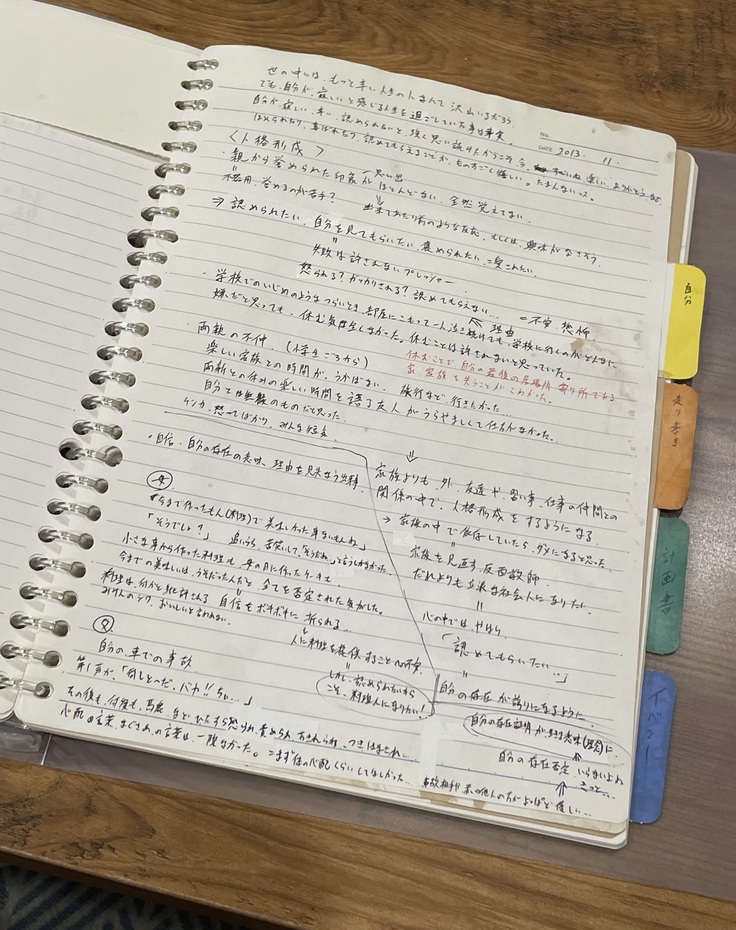 世の中には、もっと辛い人生の人なんて沢山いるだろう
でも自分が、寂しいと感じる人生を過ごしていた事は事実。
自分が寂しい、辛い、認められないと、強く思い続けたからこそ、今、
ほめられたり、喜ばれたり、認めてもらえることが、ものすごく嬉しい。たまんないっス。
NO.
DATE 2013. 11.
〈人格形成〉
・親から誉められた印象が ほとんどない 全然覚えてない。
思い出
不器用、誉めるのが苦手?
出来てあたり前のような反応、もしくは、興味がなさそう
⇒ 認められたい、自分を見てもらいたい、褒められたい、=愛されたい。
失敗は許されないプレッシャー
怒られる?がっかりされる?認めてもらえない… =不安、恐怖
理由
・学校でのいじめのようなつらいとき、部屋にこもって一人泣き続けても、学校に行くのがどんなに
嫌だと思っても、休む気は生しなかった。休むことは許されないと思っていた。
休むことで自分の最後の居場所、寄り所である
家、家族を失うことがこわかった。
両親の不仲 (小学生ごろから)
楽しい家族との時間が、うかばない、 旅行など 行きたかった…
両親との休みの楽しい時間を語る友人が うらやましくて仕方がなかった。
自分とは無縁のものだと思った
ケンカ、怒ってばかり、みんな短気
・自信、自分の存在の意味、理由を見失う出来事
母
「今まで作ったもん(料理)で美味しかった事ないもんね」
「そうでしょ?」 追いうち、苦笑いして「そうだね」と言うしかなかった
小さな身から作った料理も、母の日に作ったケーキも
今までの美味しいは、うそだったんだと 全てを否定された気がした。
料理は何かと比較される 自信をボキボキに折られる
おいしいと言われない。
人に料理を提供することへの不安
しかし、認められないから
こそ、料理人になりたい!
父
自分の車での事故
第1声が、「何しとっだ、バカ!! ちゃ…」
その後も、何度も、 などひたすら怒られ、責められ つきはなされ…
心配の言葉、なぐさめの言葉は、一切なかった。=まず体の心配くらいしてほしかった…
事故相手 の他人の方がよっぽど優しい…
家族よりも、外、友達や、習い事、仕事の仲間との
関係の中で、人格形成をするようになる
→ 家族の中で依存していたら、ダメになると思った
家族を見直す、反面教師
だれよりも立派な社会人になりたい。
心の中では、やはり
「認めてもらいたい…」
自分の存在が誇りになるように
自分の存在証明が生きる意味(理由)に
自分の存在否定 いらないよね
自分
走り書き
計画書
イベント